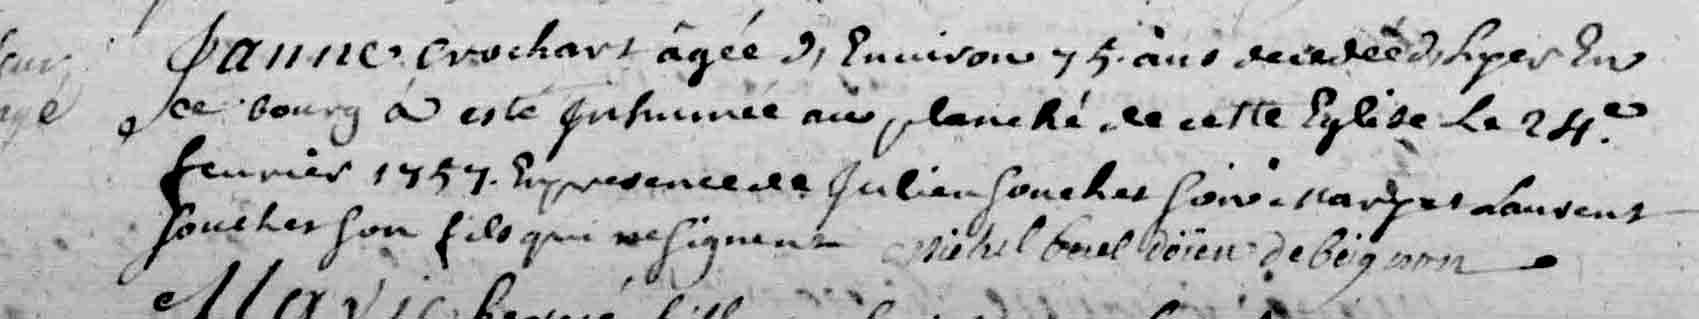 Janne Crochart âgée d'Environ 75 ans decedée d'hyer En
ce bourg a esté Inhumée au planché de cette Eglise Le 24e
fevrier 1757. En presence de Julien Souchet Laurent
Souchet son fils qui ne signent Michel doïen de beignon